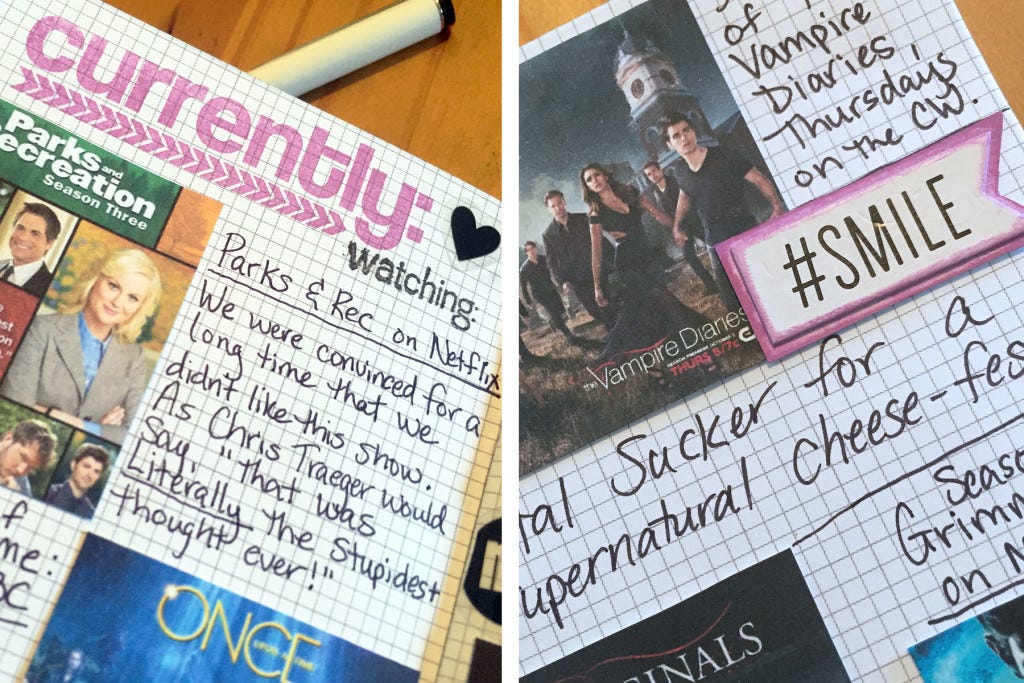 currently:
watching:
Parks and
Recreation
Season Three
Parks & Rec on Netflix
We were convinced for a
long time that we
didn't like this show.
As Chris Traeger would
say, "That was
Literally the Stupidest
thought ever!"
ONCE
UPON A TIME
of
Vampire
Diaries,
Thursday's
on the CW.
#SMILE
the Vampire Diaries
THURS 8/7c
Sucker for a
supernatural cheese-fes
Seaso
Grimm
on N